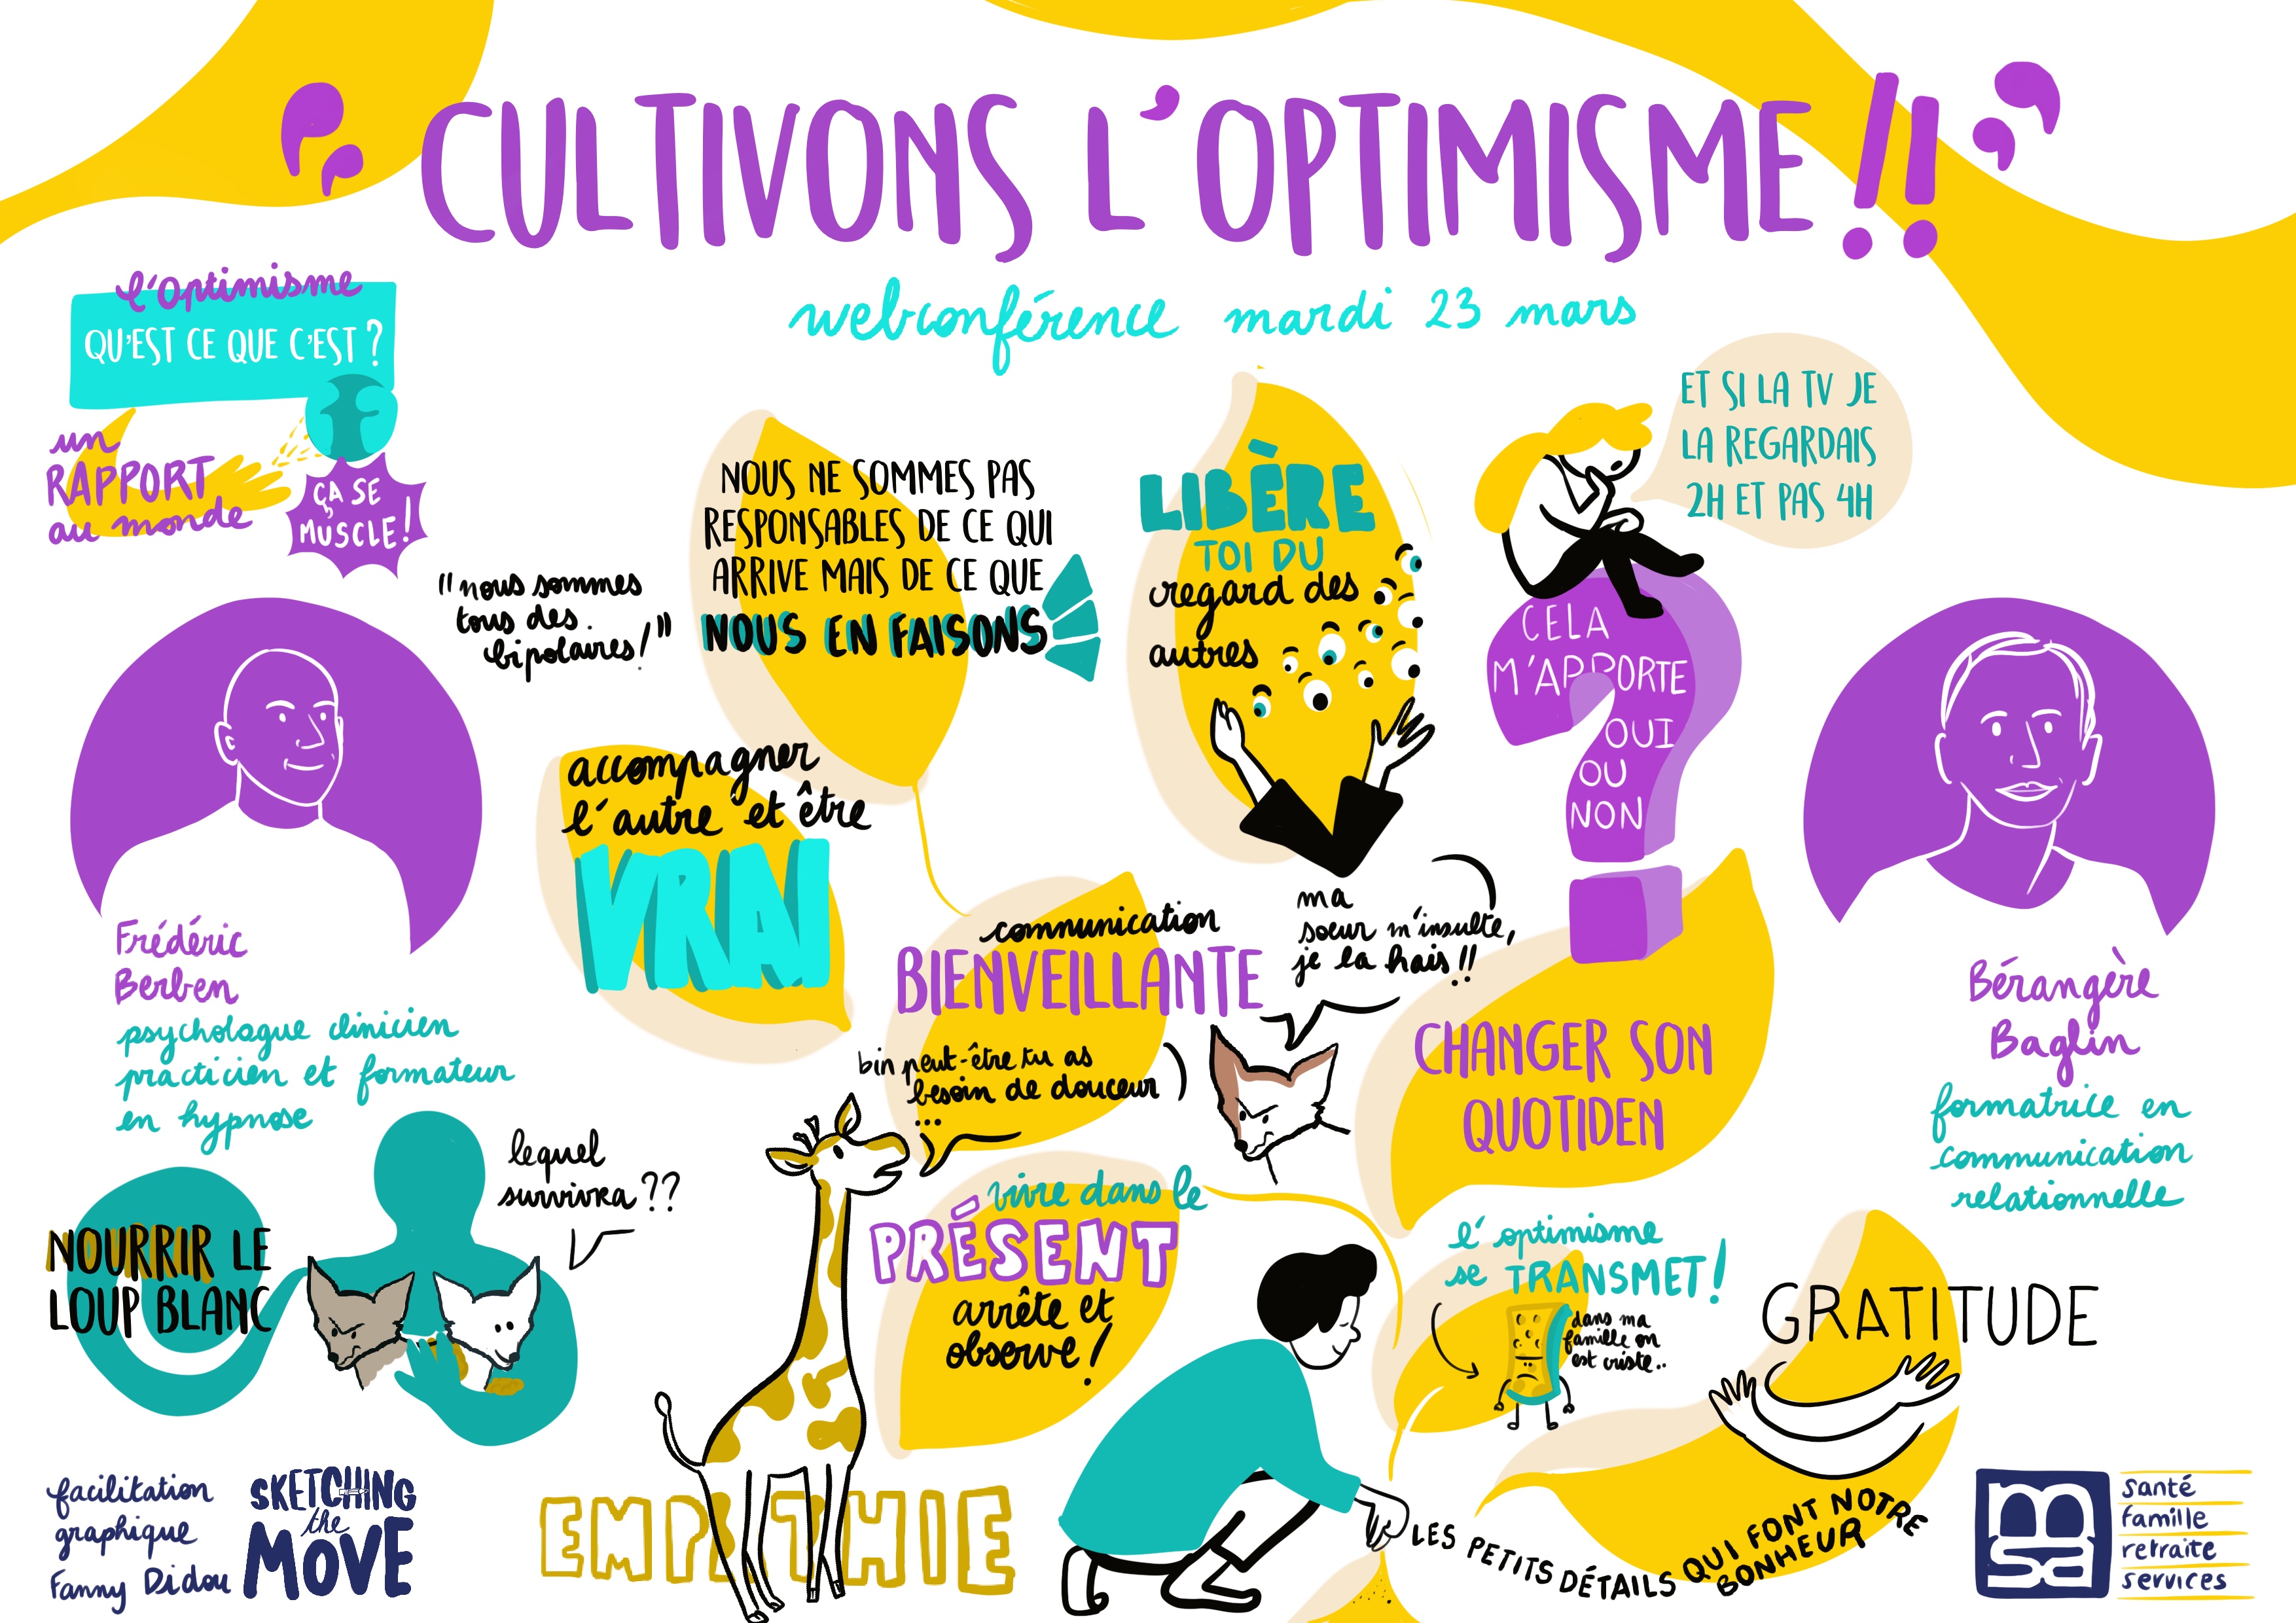 CULTIVONS L'OPTIMISME !!
webconférence mardi 23 mars
l'optimisme
QU'EST CE QUE C'EST ?
un
RAPPORT
au monde
ÇA SE
MUSCLE !
"nous sommes
tous des
bipolaires !"
NOUS NE SOMMES PAS
RESPONSABLES DE CE QUI
ARRIVE MAIS DE CE QUE
NOUS EN FAISONS
LIBÈRE
TOI DU
regard des
autres
ET SI LA TV JE
LA REGARDAIS
2H ET PAS 4H
CELA
M'APPORTE
OUI
OU
NON
accompagner
l'autre et être
VRAI
Frédéric
Berben
psychologue clinicien
practicien et formateur
en hypnose
communication
BIENVEILLANTE
ma
soeur m'insulte,
je la hais !!
bin peut-être tu as
besoin de douceur
...
CHANGER SON
QUOTIDEN
Bérangère
Baglin
formatrice en
communication
relationnelle
lequel
survivra ??
NOURRIR LE
LOUP BLANC
vivre dans le
PRÉSENT
arrête et
observe !
l'optimisme
se TRANSMET !
dans ma
famille on
est triste..
GRATITUDE
EMPATHIE
LES PETITS DÉTAILS QUI FONT NOTRE
BONHEUR
facilitation
graphique
Fanny Didou
SKETCHING
the
MOVE
msa
santé
famille
retraite
services